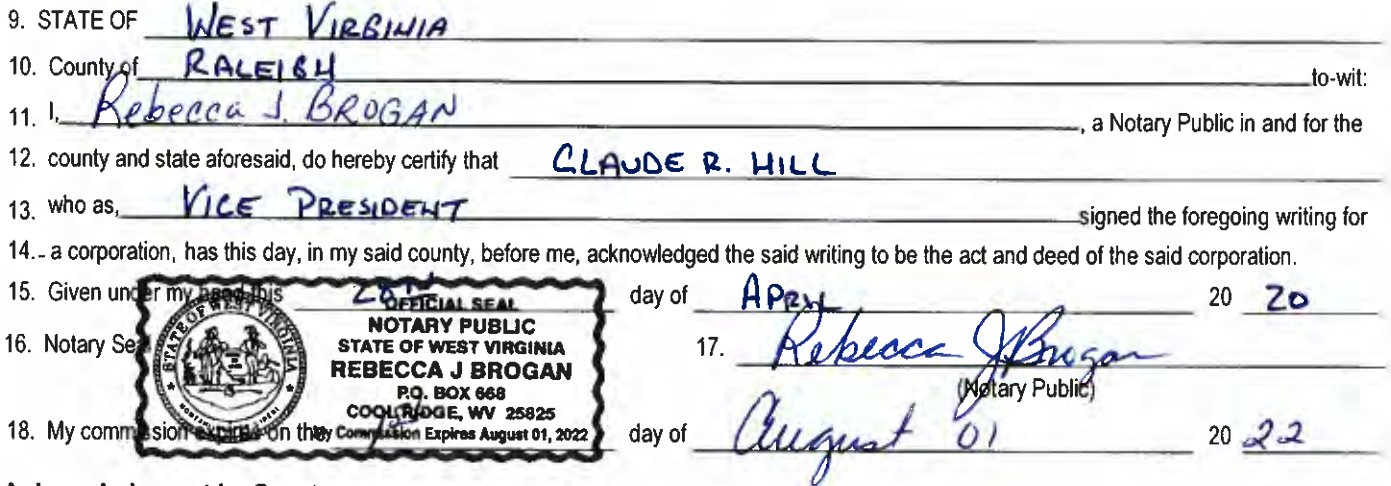 9. STATE OF WEST VIRGINIA
10. County of RALEIGH to-wit:
11. I, Rebecca J. BROGAN, a Notary Public in and for the
12. county and state aforesaid, do hereby certify that CLAUDE R. HILL
13. who as, VICE PRESIDENT signed the foregoing writing for
14. a corporation, has this day, in my said county, before me, acknowledged the said writing to be the act and deed of the said corporation.
15. Given under my hand this day of APRIL 20 20
OFFICIAL SEAL
NOTARY PUBLIC
STATE OF WEST VIRGINIA
REBECCA J BROGAN
P.O. BOX 668
COOL RIDGE, WV 25825
My Commission Expires August 01, 2022
STATE OF WEST VIRGINIA
16. Notary Se
17. Rebecca J Brogan
(Notary Public)
18. My commission expires on the day of August 01 20 22